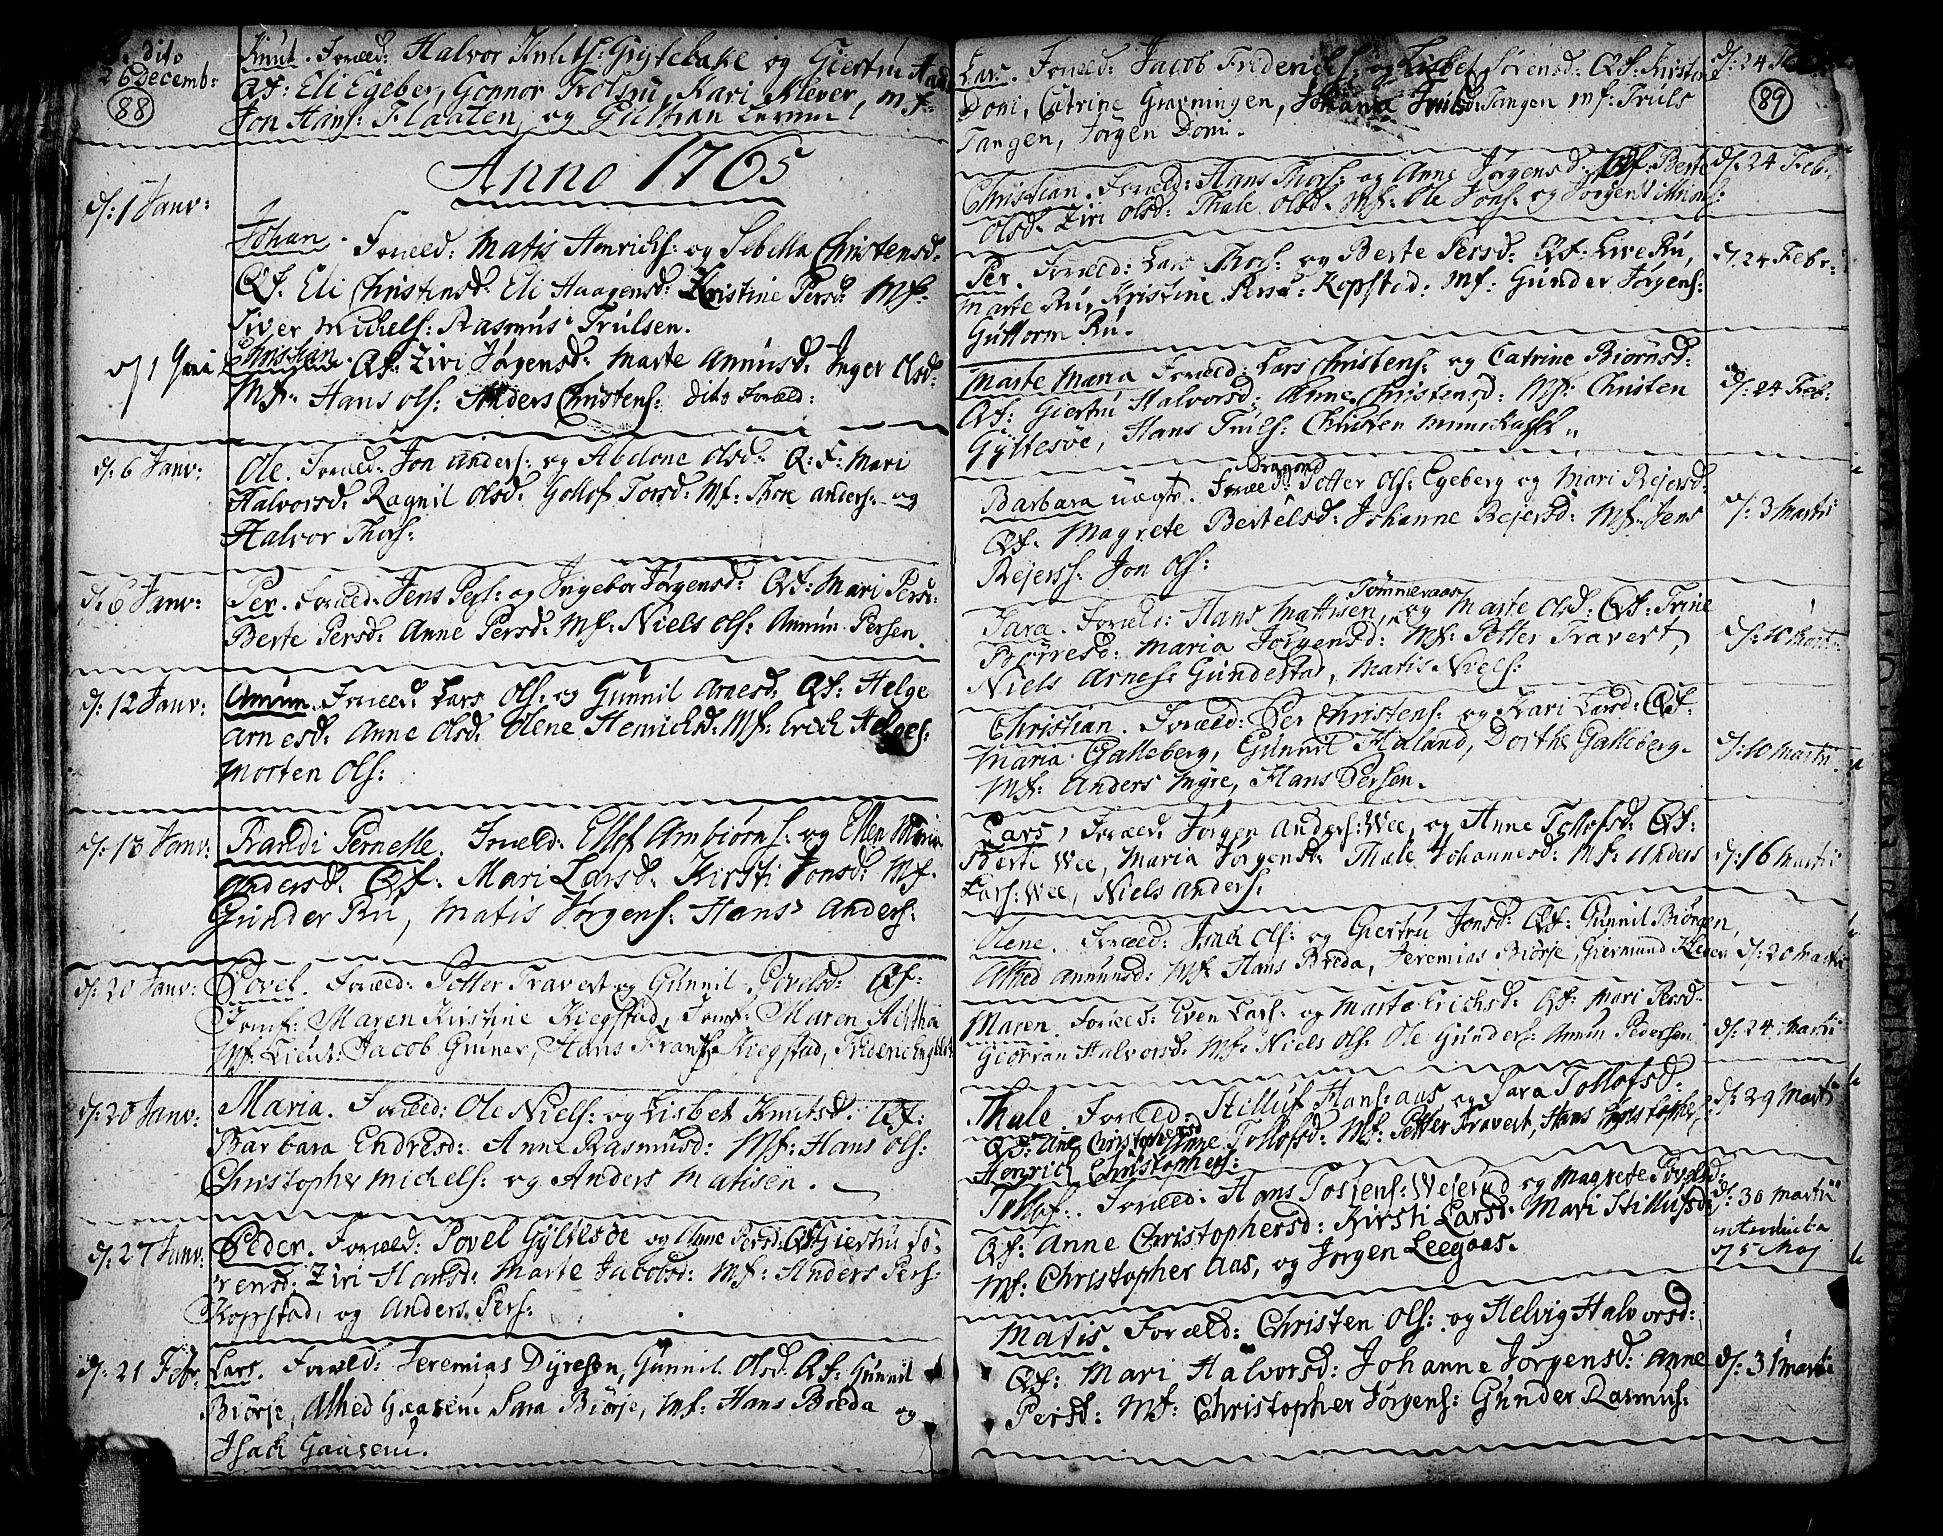 dito
26 Decemb:
88
Knut. Foræld: Halvor og Giertru
Qf: Eli Egeber, Gonnor Trolsru, Kari Klever, mf:
Jon Hans: Flaaten, og
Anno 1765
d: 1 Janv:
Johan. Foræld: Matis Henrichs: og Sebella Christensd:
Qf. Eli Christensd: Eli Haagensd: Kristine Persd: Mf:
Siver Michels: Rasmus Trulsen.
d 1 Christian. Qf: Ziri Jørgensd: Marte Amunsd: Inger Olsd:
Mf: Hans Ols: Anders Christens: dito Foræld:
d: 6 Janv: Ole. Foræld: Jon Anders: og Abelone Olsd: Q: F: Mari
Halvorsd: Ragnil Olsd: Gollof Torsd: Mf: Thore Anders: og
Halvor Thors:
d: 6 Janv: Per. Foræld: Jens Pers: og Ingebor Jørgensd: Qf: Mari Persd:
Berte Persd: Anne Persd: Mf: Niels Ols: Amun Persen.
d: 12 Janv: Amun. Foræld: Lars Ols: og Gunnil Arnesd: Qf: Helge
Arnesd: Anne Olsd: Olene Henrichsd: Mf: Erich Helges:
Morten Ols:
d: 13 Janv: Randi Pernelle. Foræld: Ellef Ambiørns: og Ellen Maria
Andersd: Qf: Mari Larsd: Kirsti Jonsd: Mf:
Gunder Ru, Matis Jørgens: Hans Anders:
d: 20 Janv: Povel. Foræld: Petter Travert og Gunnil Povelsd: Qf:
Jomf: Maren Kirstine Kiegstad, Jomf: Maren
Mf: Lieut: Jacob Guner, Hans Frans: Kiegstad,
d: 20 Janv: Maria. Foræld: Ole Niels: og Lisbet Knutsd: Qf:
Barbara Endresd: Anne Rasmusd: Mf: Hans Ols:
Christopher Michels: og Anders Matisen.
d: 27 Janv: Peder. Foræld: Povel Gyltesøe og Anne Persd: Qf: Giertru Sø-
rensd: Ziri Hansd: Marte Jacobsd: Mf: Anders Pers:
Kopstad, og Anders Pers:
d: 21 Febr: Lars. Foræld: Jeremias Dyresøn, Gunnil Olsd: Qf: Gunnil
Biørje, Alhed Gaaseru Sara Biørje, Mf: Hans Breda og
Isach Gaaseru.
89
Lars. Foræld: Jacob Frederichs: og Lisbet Sørensd: Qf: Kirstine d: 24
Doni, Catrine Gravningen, Johanna Trulsd: Tangen Mf: Truls
Tangen, Jørgen Doni.
Christian. Foræld: Hans Thors: og Anne Jørgensd: Qf: Berte d: 24 Feb:
Olsd: Ziri Olsd: Thale Olsd: Mf: Ole Jons: og Jørgen
Per. Foræld: Lars Thors: og Berte Persd: Qf: Live Ru, d: 24 Febr:
Marte Ru, Kristine Persd: Kopstad: Mf: Gunder Jørgens:
Guttorm Ru.
Marte Maria Foræld: Lars Christens: og Catrine Biørnsd:
Qf: Giertru Halvorsd: Anne Christensd: Mf: Christen d: 24 Feb:
Gyltesøe, Hans Truls: Christen
Dragond
Barbara uægte. Foræld: Petter Ols: Egeberg og Mari Rejersd:
Qf: Magrete Bertelsd: Johanne Rejersd: Mf: Jens d: 3 Martii
Rejerss: Jon Ols:
Tømmeraas
Sara. Foræld: Hans Mattisen, og Marte Olsd: Qf: Trine
Børresd: Maria Jørgensd: Mf: Petter Travert, d: 10 Marti:
Niels Arnes: Gundestad, Matis Niels:
Christian. Foræld: Per Christens: og Kari Larsd: Qf:
Maria Galleberg, Gunnil Holland, Dorthe Galleberg. d: 10 Martii
Mf: Anders Myre, Hans Persen.
Lars, Foræld: Jørgen Anders: Wee, og Anne Tollofsd: Qf:
Berte Wee, Maria Jørgensd: Thale Johannesd: Mf: Anders d: 16 Martii
Lars: Wee, Niels Anders:
Olene. Foræld: Isach Ols: og Giertru Jonsd: Qf: Gunnil Biørgen,
Alhed Amunsd: Mf: Hans Breda, Jeremias Biørje, Giermund Klever d: 20 Martii
Maren. Foræld: Even Lars: og Marta Erichsd: Qf: Mari Persd:
Halvorsd: Mf: Niels Ols: Ole Gunders: Amun Pedersen d: 24 Martii
Thale. Foræld: Stilluf Hans: Aas, og Sara Tollofsd: d: 29 Marti
Qf: Anne Christophersd Anne Tollofsd: Mf: Petter Travert, Hans Christophers,
Henrich Christophers:
Tollof. Foræld: Hans Torjens: Wejerud og Magrete Povelsd: d: 30 Martii
Qf: Anne Christophersd: Kirsti Larsd: Mari Stillufsd: introducta
Mf: Christopher Aas, og Jørgen Leegaas. d 5 Maj
Matis. Foræld: Christen Ols: og Helvig Halvorsd:
Qf: Mari Halvorsd: Johanne Jørgensd: Anne d: 31 Marti
Persd: Mf: Christopher Jørgens: Gunder Rasmus: